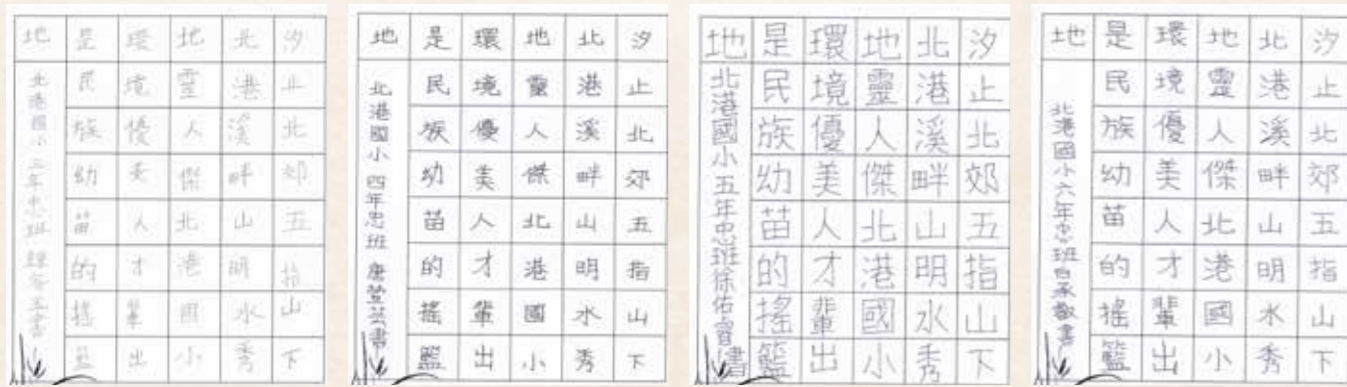 汐止北郊五指山下
北港溪畔山明水秀
地靈人傑北港國小
環境優美人才輩出
是民族幼苗的搖籃
地
北港國小三年忠班
書
汐止北郊五指山下
北港溪畔山明水秀
地靈人傑北港國小
環境優美人才輩出
是民族幼苗的搖籃
地
北港國小四年忠班唐萱
書
汐止北郊五指山下
北港溪畔山明水秀
地靈人傑北港國小
環境優美人才輩出
是民族幼苗的搖籃
地
北港國小五年忠班徐佑睿書
汐止北郊五指山下
北港溪畔山明水秀
地靈人傑北港國小
環境優美人才輩出
是民族幼苗的搖籃
地
北港國小六年忠班白承叡書